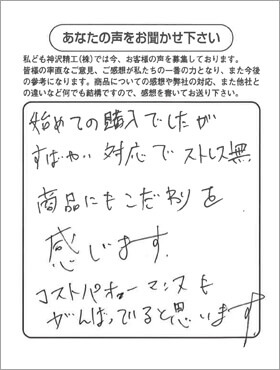 あなたの声をお聞かせ下さい
私ども神沢精工(株)では今、お客様の声を募集しております。
皆様の率直なご意見、ご感想が私たちの一番の力となり、また今後
の参考になります。商品についての感想や弊社の対応、また他社と
の違いなど何でも結構ですので、感想を書いてお送り下さい。
始めての購入でしたが
すばやい対応でストレス無
商品にもこだわりを
感じます.
コストパホーマンスも
がんばっていると思います.